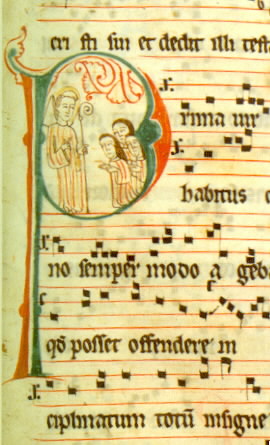 cri sci sui et dedit illi test
Prima uir
habitus
no semper modo a geba
qđ posset offendere in
ciplinatum totū insigne